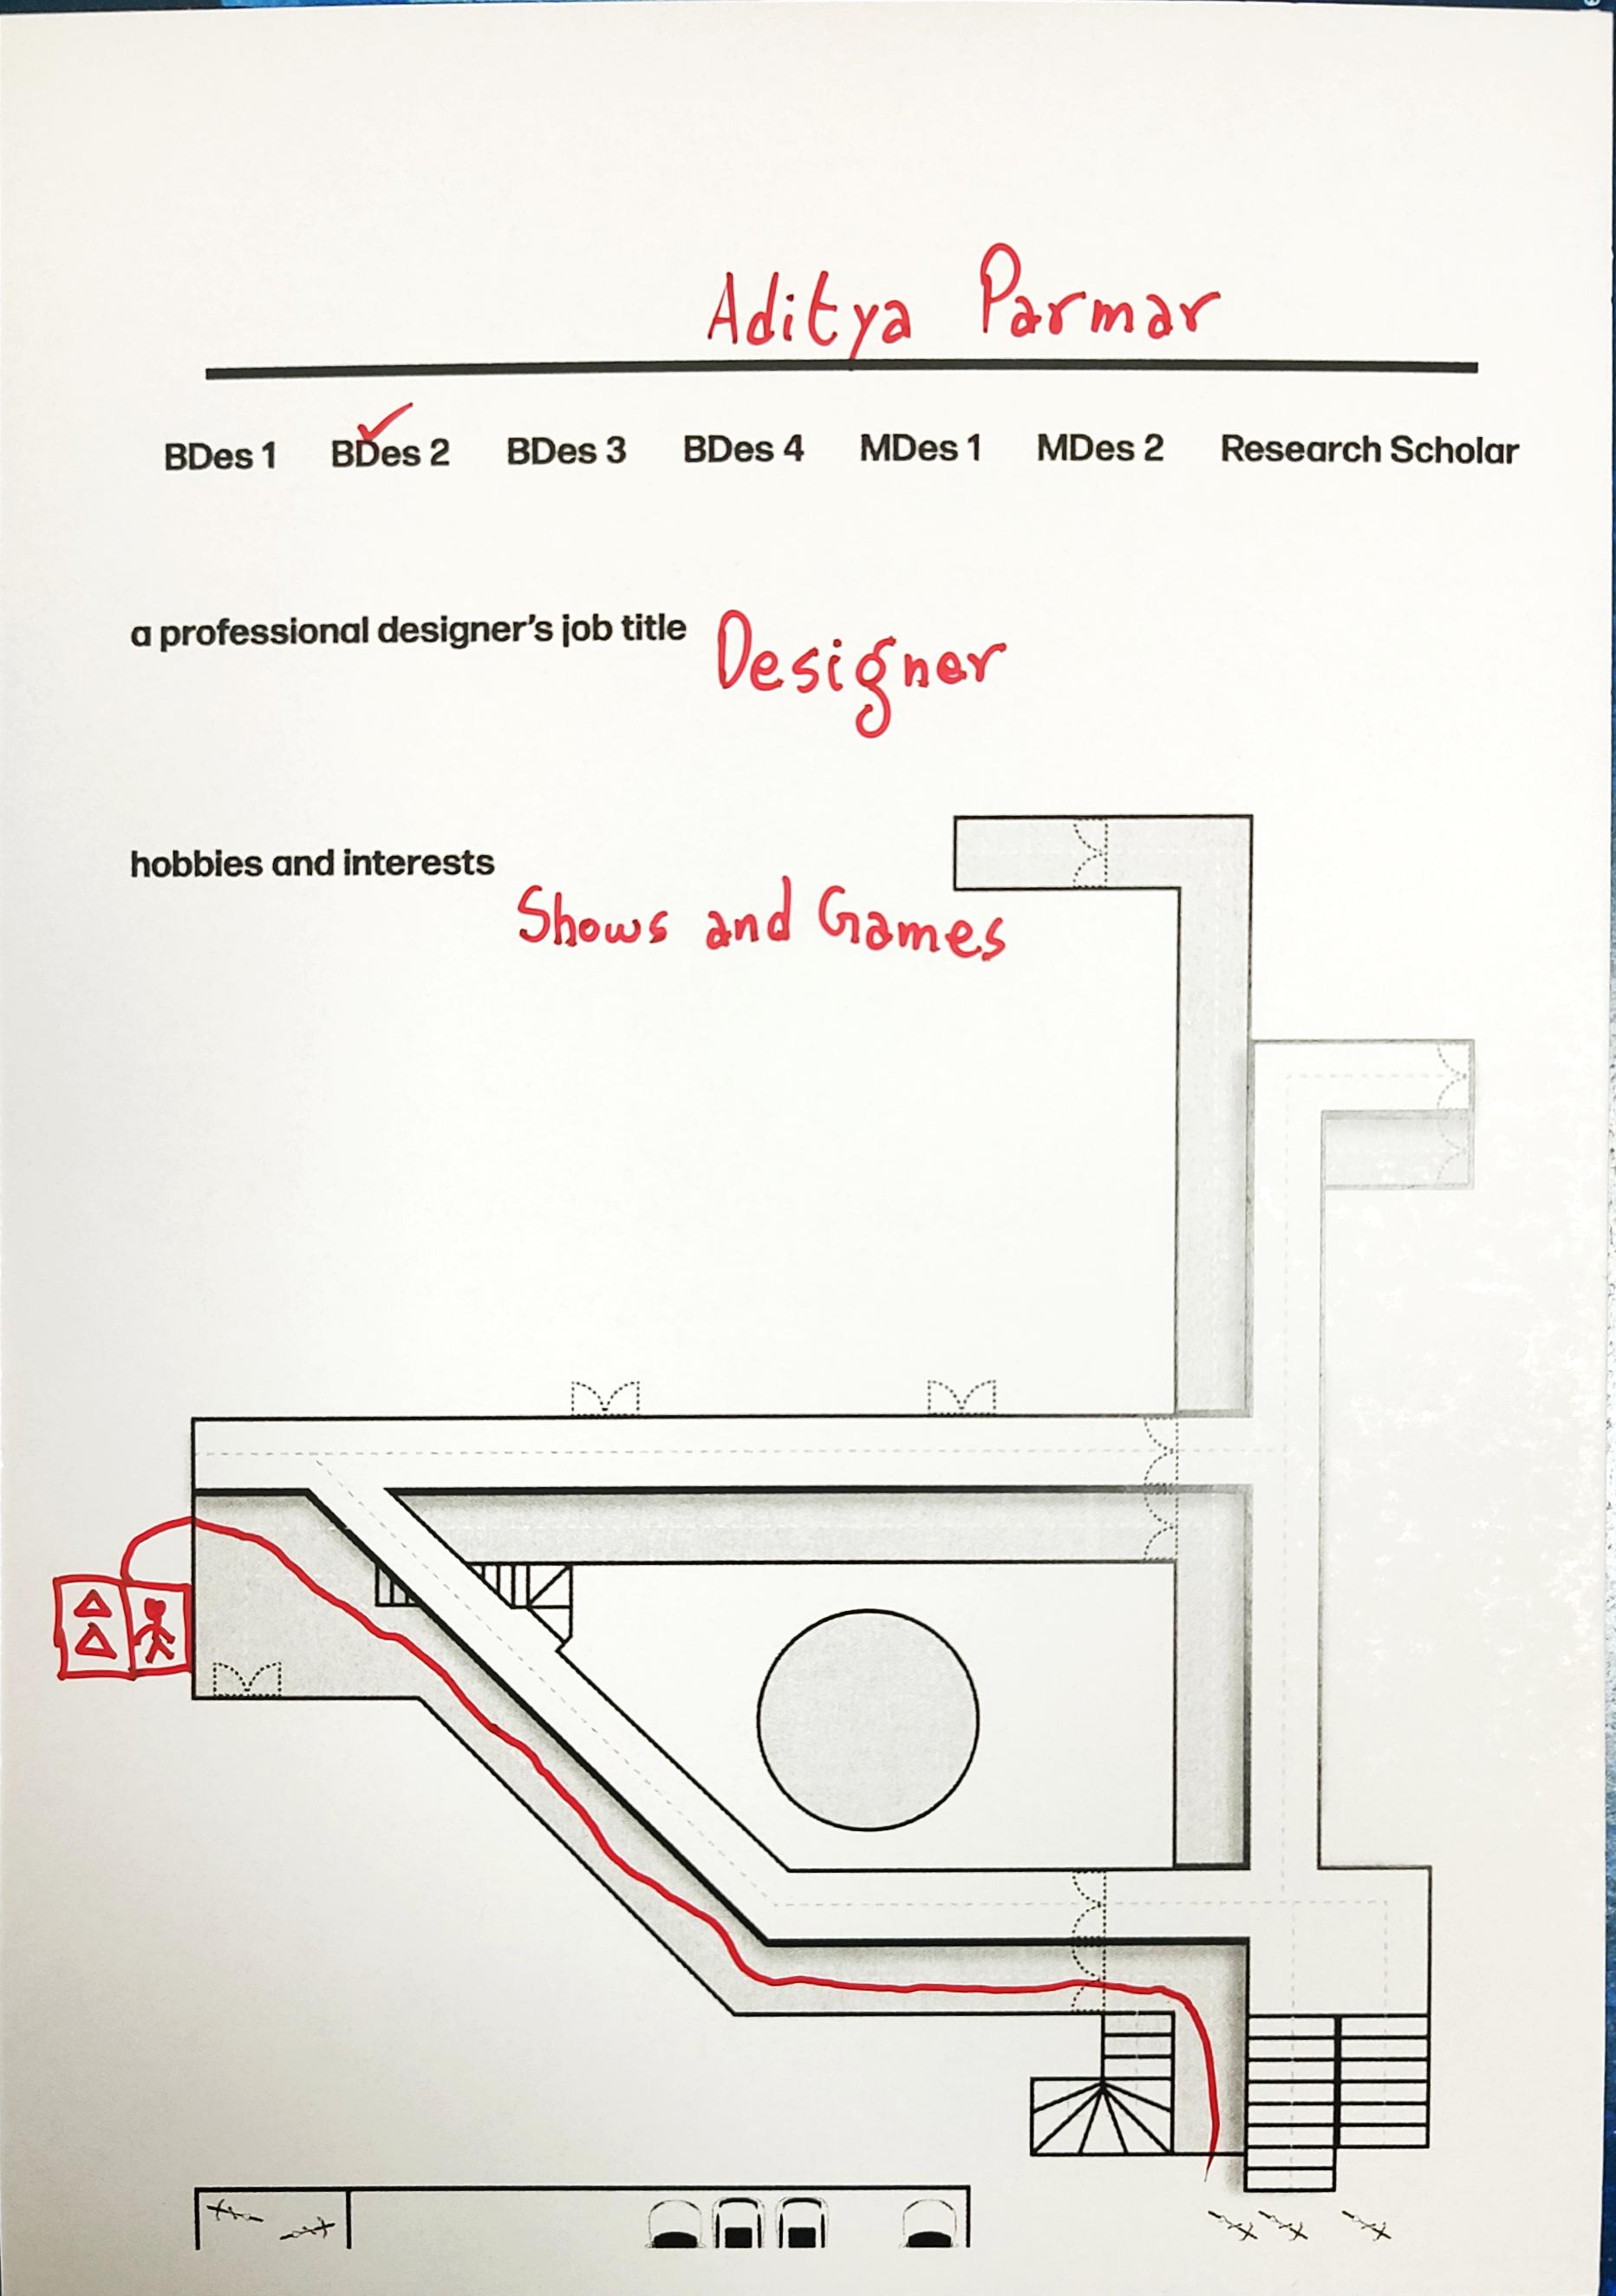 Aditya Parmar
BDes 1 BDes 2 BDes 3 BDes 4 MDes 1 MDes 2 Research Scholar
a professional designer's job title Designer
hobbies and interests
Shows and Games